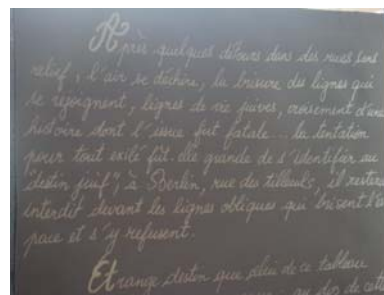 Après quelques détours dans des rues sans
relief, l'air se déchire, la brisure des lignes qui
se rejoignent, lignes de vie juives, croisement d'une
histoire dont l'issue fut fatale... la tentation
pour tout exilé fût-elle grande de s'identifier au
"destin juif"; à Berlin, rue des tilleuls, il restera
interdit devant les lignes obliques qui brisent l'es
pace et s'y refusent.
Etrange destin que celui de ce tableau
au dos de cette